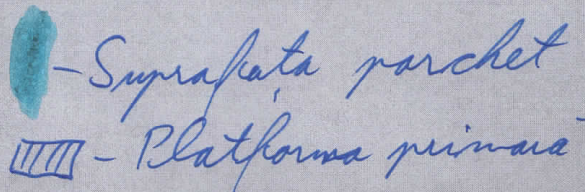 - Suprafața parchet
- Platforma primară